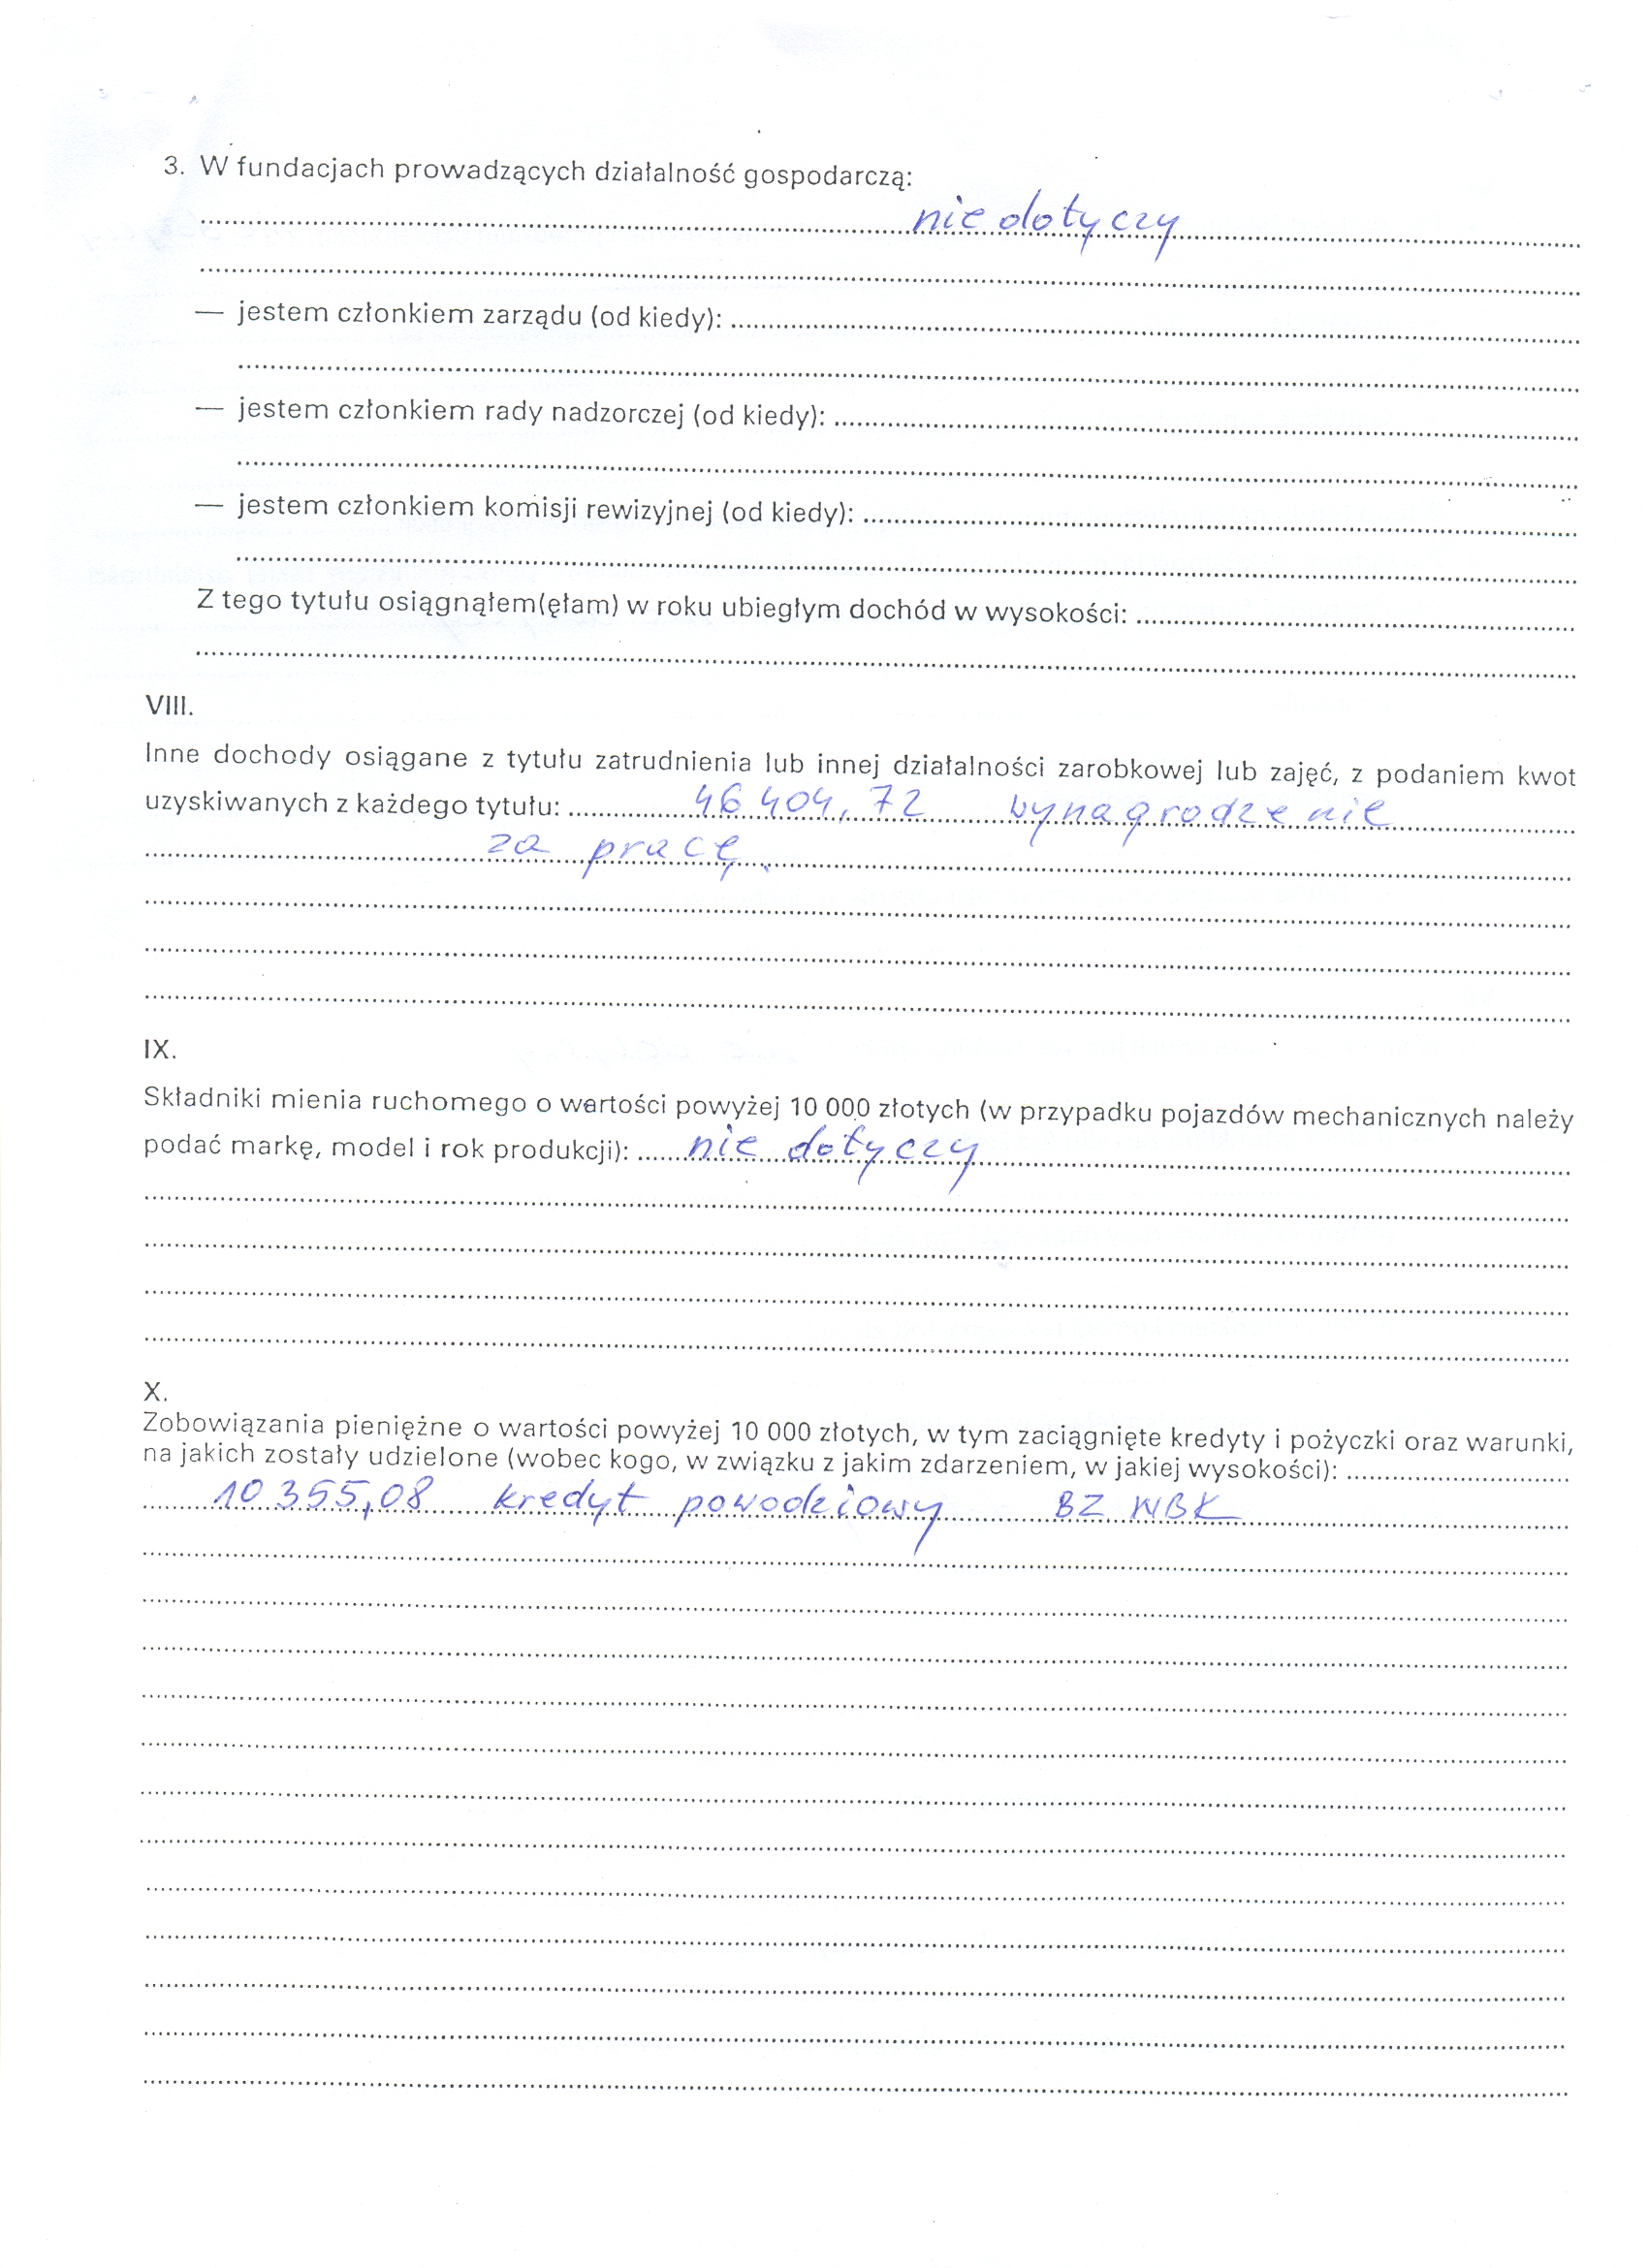 3. W fundacjach prowadzących działalność gospodarczą:
nie dotyczy
— jestem członkiem zarządu (od kiedy):
— jestem członkiem rady nadzorczej (od kiedy):
— jestem członkiem komisji rewizyjnej (od kiedy):
Z tego tytułu osiągnąłem(ęłam) w roku ubiegłym dochód w wysokości:
VIII.
Inne dochody osiągane z tytułu zatrudnienia lub innej działalności zarobkowej lub zajęć, z podaniem kwot
uzyskiwanych z każdego tytułu: 46 404,72 wynagrodzenie
za pracę
IX.
Składniki mienia ruchomego o wartości powyżej 10 000 złotych (w przypadku pojazdów mechanicznych należy
podać markę, model i rok produkcji): nie dotyczy
X.
Zobowiązania pieniężne o wartości powyżej 10 000 złotych, w tym zaciągnięte kredyty i pożyczki oraz warunki,
na jakich zostały udzielone (wobec kogo, w związku z jakim zdarzeniem, w jakiej wysokości):
10 355,08 kredyt powodziowy BZ WBK